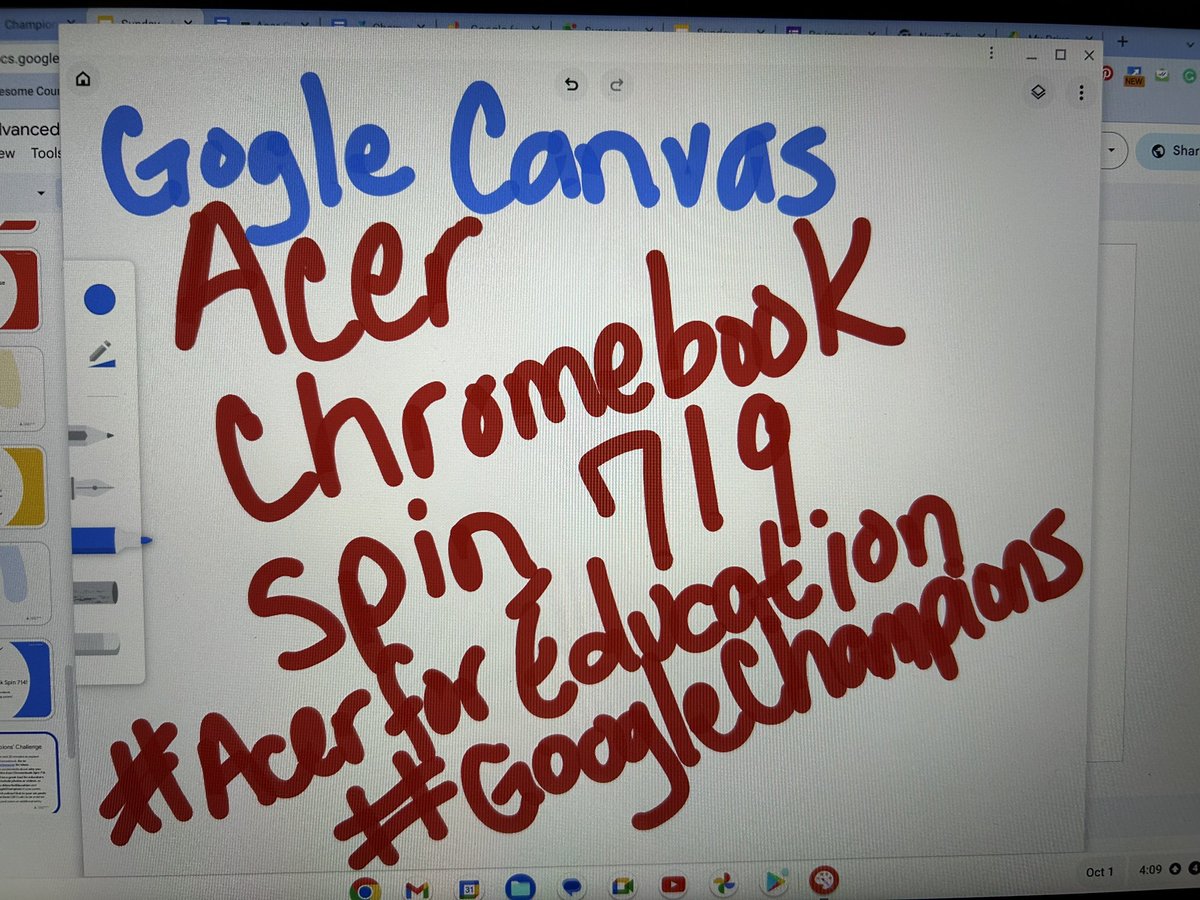 Champion
Sunday
cs.google
esome Cou
NEW
dvanced
ew Tools
Shar
Gogle Canvas
Acer
Chromebook
Spin 719
#Acer for Education
#GoogleChampions
k Spin 714!
pions' Challenge
31
Oct 1 4:09